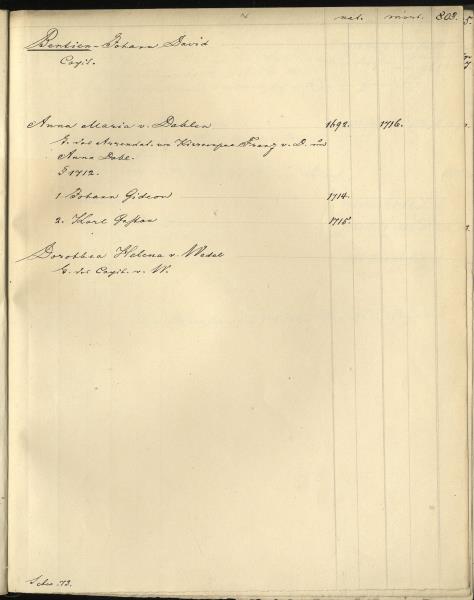 nat. mort. 803.
Bentien - Johann David
Capit.
Anna Maria v. Dahlen 1692. 1716.
T. des Arrendat. von Kierrumpae Franz v. D. und
Anna Dahl.
1712.
1 Johann Gideon 1714.
2. Karl Gustav 1715.
Dorothea Helena v. Wedel
T. des Capit. v. W.
73.